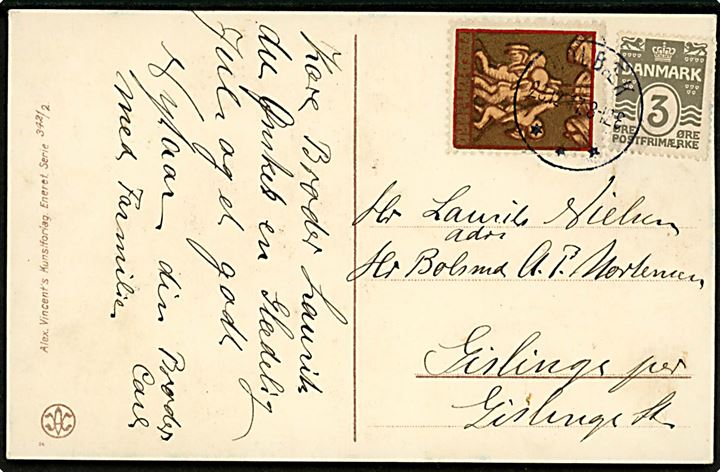 Kære Broder Laurits
du Ønskes en Glædelig
Jul og et godt
Nytaar din Broder
med Familie Carl
Alex. Vincent's Kunstforlag. Eneret. Serie 342/2
DANMARK
3
ØRE ØRE
POSTFRIMÆRKE
Hr Laurits Nielsen
adrs
Hr Bolsmd A. P. Mortensen
Gislinge per
Gislinge St